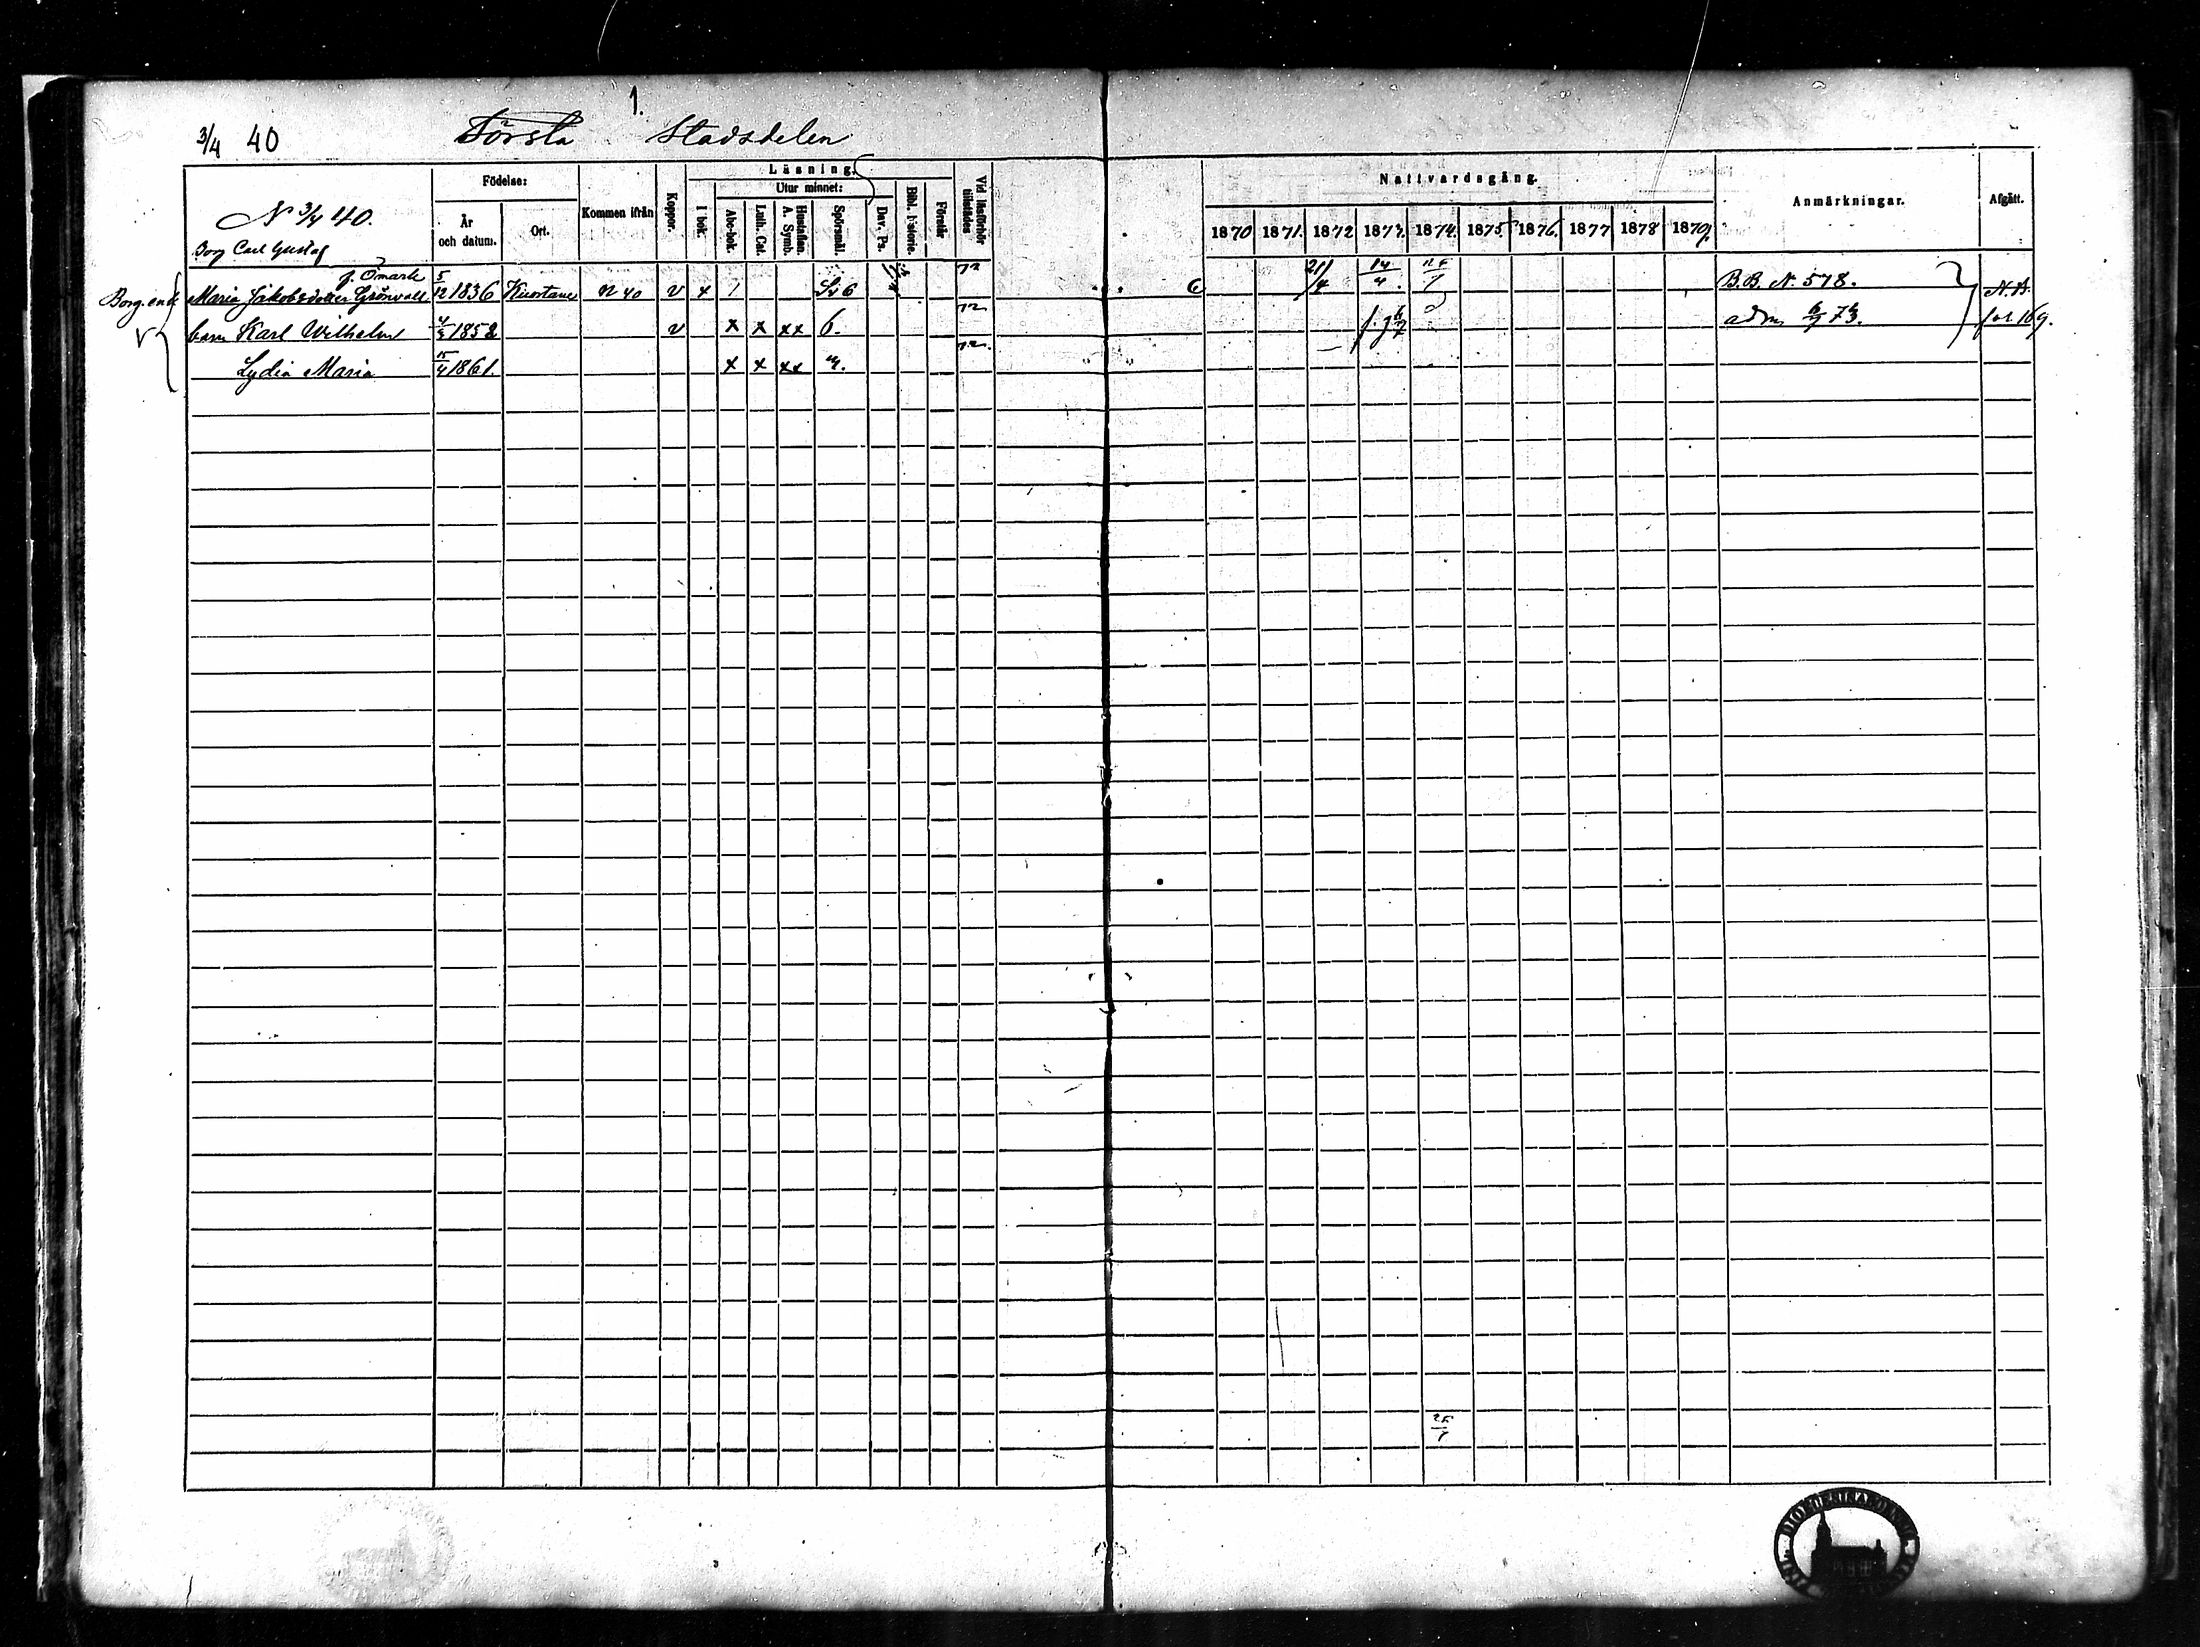 1.
3/4 40 Första Stadsdelen
Läsning.
Födelse: Utur minnet: Nattvardsgång.
N 3/4 40. År och datum. Ort. Kommen ifrån Koppor. I bok. Abc-bok. Luth. Cat. Hustaflan. A. Symb. Spörsmål. Dav. Ps. Bibl. historie. Förstår Vid läsförhör tillstädes 1870 1871. 1872 1873. 1874. 1875. 1876. 1877 1878 1879. Anmärkningar. Afgått.
Borg Carl Gustaf
f. Ömark
Borg. enk Maria Jakobsdotter Grönvall 5/12 1836 Kuortane N 40 v x 1 Sv 6 72 6 21/4 14/4. B.B. N. 578. N.B.
barn Karl Wilhelm 4/3 1858 v x x xx 6. 72 adm 6/7 73. fol 169.
Lydia Maria 15/4 1861. x x xx 4. 72
25/1